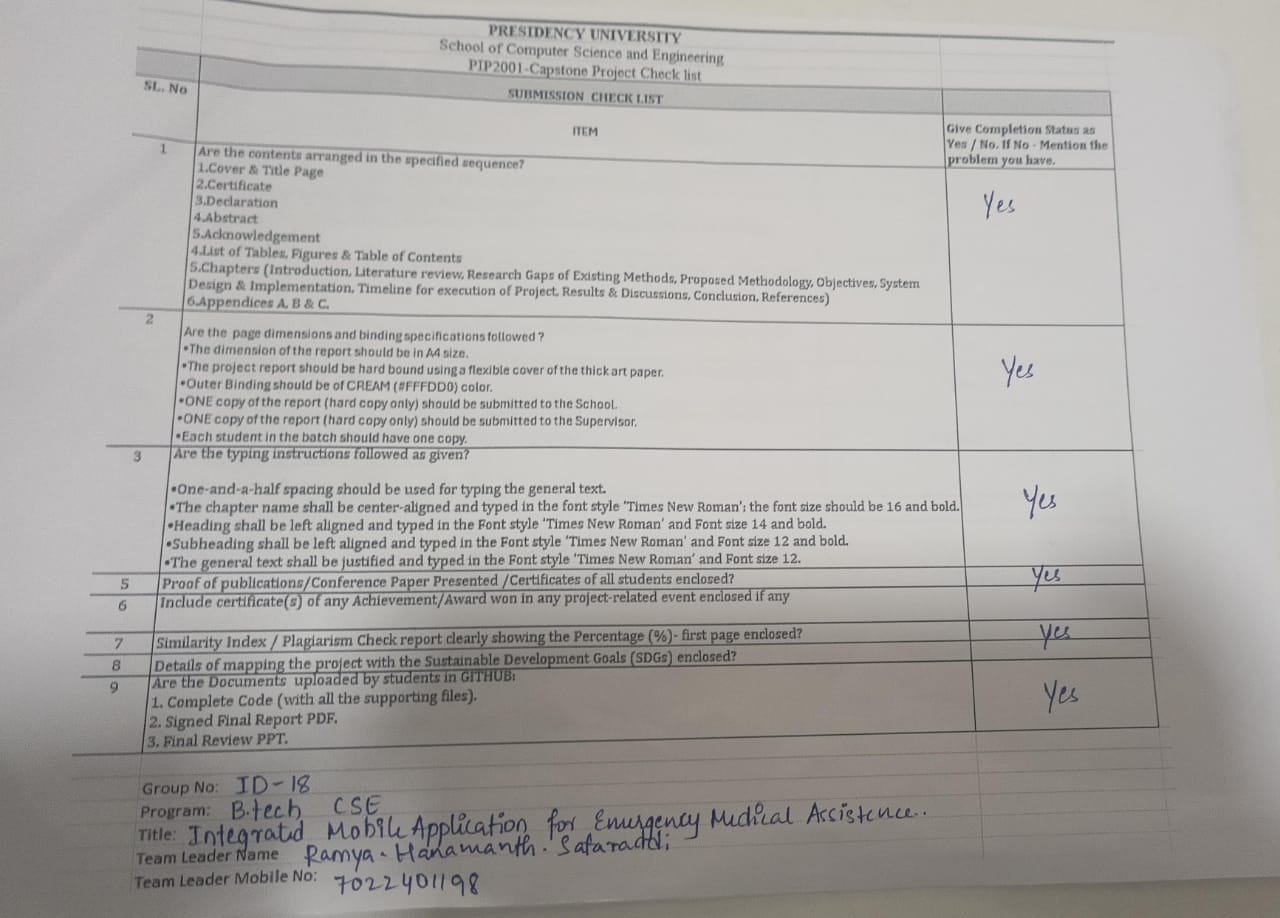 PRESIDENCY UNIVERSITY
School of Computer Science and Engineering
PIP2001-Capstone Project Check list
SL. No
SUBMISSION CHECK LIST
ITEM
Give Completion Status as
Yes / No. If No - Mention the
problem you have.
1 Are the contents arranged in the specified sequence?
1.Cover & Title Page
2.Certificate
3.Declaration
4.Abstract
5.Acknowledgement
4.List of Tables, Figures & Table of Contents
5.Chapters (Introduction, Literature review, Research Gaps of Existing Methods, Proposed Methodology, Objectives, System
Design & Implementation, Timeline for execution of Project, Results & Discussions, Conclusion, References)
6.Appendices A, B & C.
Yes
2
Are the page dimensions and binding specifications followed ?
•The dimension of the report should be in A4 size.
•The project report should be hard bound using a flexible cover of the thick art paper.
•Outer Binding should be of CREAM (#FFFDD0) color.
•ONE copy of the report (hard copy only) should be submitted to the School.
•ONE copy of the report (hard copy only) should be submitted to the Supervisor.
•Each student in the batch should have one copy.
Yes
3 Are the typing instructions followed as given?
•One-and-a-half spacing should be used for typing the general text.
•The chapter name shall be center-aligned and typed in the font style 'Times New Roman'; the font size should be 16 and bold.
•Heading shall left aligned and typed in the Font style 'Times New Roman' and Font size 14 and bold.
•Subheading shall be left aligned and typed in the Font style 'Times New Roman' and Font size 12 and bold.
•The general text shall be justified and typed in the Font style 'Times New Roman' and Font size 12.
Yes
5 Proof of publications/Conference Paper Presented /Certificates of all students enclosed? Yes
6 Include certificate(s) of any Achievement/Award won in any project-related event enclosed if any
7 Similarity Index / Plagiarism Check report clearly showing the Percentage (%)- first page enclosed? Yes
8 Details of mapping the project with the Sustainable Development Goals (SDGs) enclosed?
9 Are the Documents uploaded by students in GITHUB:
1. Complete Code (with all the supporting files).
2. Signed Final Report PDF.
3. Final Review PPT.
Yes
Group No: ID-18
Program: B.tech CSE
Title: Integrated Mobile Application for Emergency Medical Assistence..
Team Leader Name Ramya. Hanamanth.
Team Leader Mobile No: 7022401198